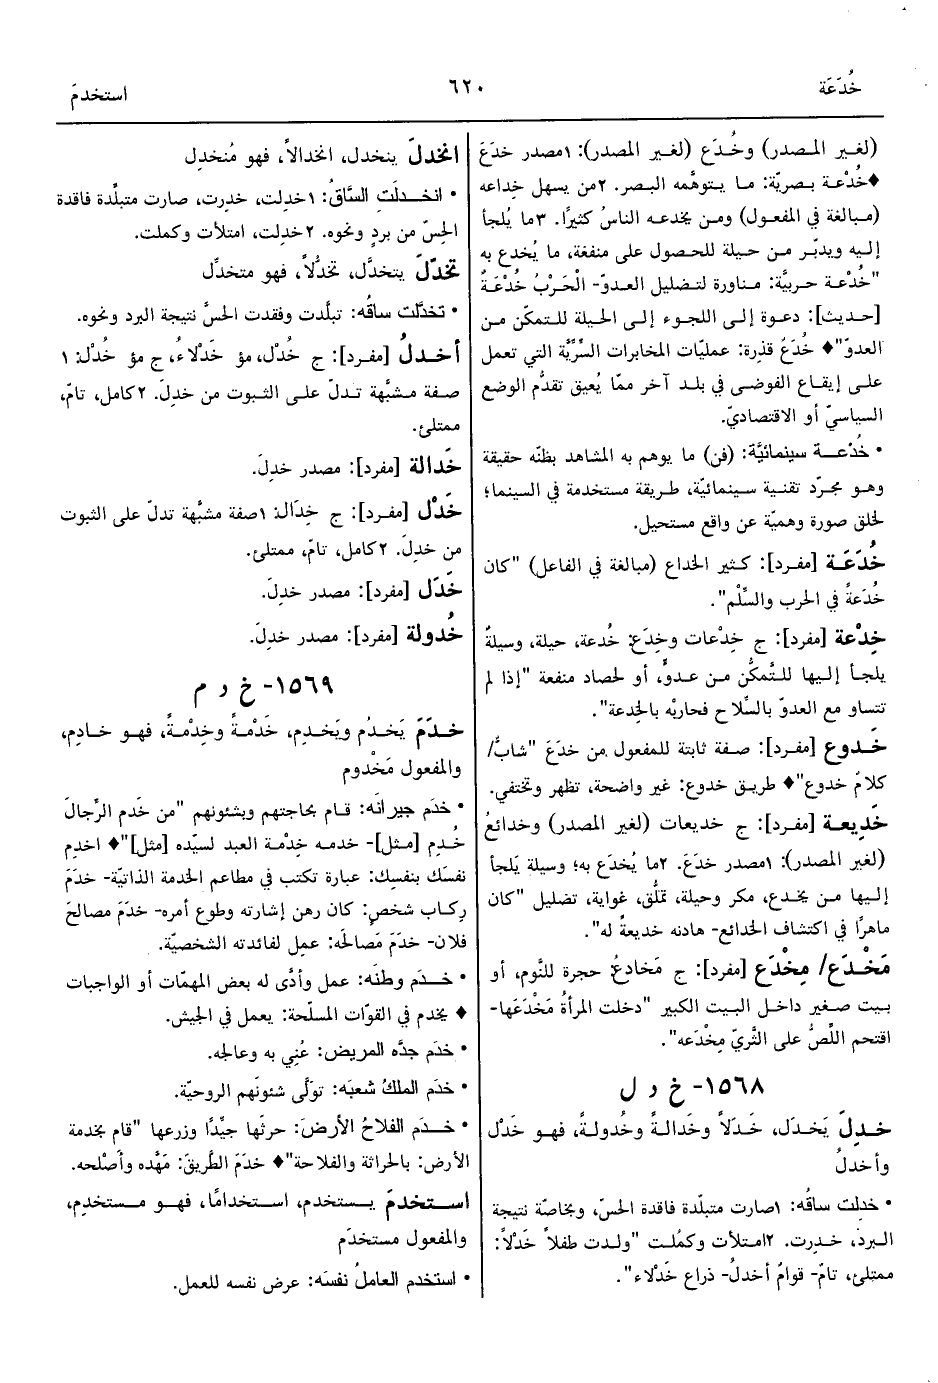 خُدَعَة
٦٢٠
استخدمَ
(لغير المصدر) وخُدَع (لغير المصدر): ١مصدر خدَعَ
♦خُدْعة بصريّة: ما يتوهَّمه البصر. ٢من يسهل خِداعه
(مبالغة في المفعول) ومن يخدعه الناسُ كثيرًا. ٣ما يُلجأ
إليه ويدبّر من حيلة للحصول على منفعة، ما يُخدع به
"خُدْعة حربيَّة: مناورة لتضليل العدوّ- الْحَرْبُ خُدْعَةٌ
[حديث]: دعوة إلى اللجوء إلى الحيلة للتمكّن من
العدوّ"♦ خُدَعٌ قذِرة: عمليّات المخابرات السِّرِّيَّة التي تعمل
على إيقاع الفوضى في بلد آخر ممّا يُعيق تقدُّم الوضع
السياسيّ أو الاقتصاديّ.
• خُدْعة سينمائيَّة: (فن) ما يوهم به المشاهد بظنّه حقيقة
وهو مجرّد تقنية سينمائيّة، طريقة مستخدمة في السينما؛
لخلق صورة وهميّة عن واقع مستحيل.
خُدَعَة [مفرد]: كثير الخداع (مبالغة في الفاعل) "كان
خُدَعةً في الحرب والسِّلْم".
خِدْعة [مفرد]: ج خِدْعات وخِدَع: خُدعة، حيلة، وسيلةٌ
يلجأ إليها للتَّمكُّن من عدوٍّ، أو لحصاد منفعة "إذا لم
تتساو مع العدوّ بالسِّلاح فحاربْه بالخِدعة".
خَدوع [مفرد]: صفة ثابتة للمفعول من خدَعَ "شابٌّ/
كلامٌ خدوع"♦ طريق خدوع: غير واضحة، تظهر وتختفي.
خَديعة [مفرد]: ج خديعات (لغير المصدر) وخدائعُ
(لغير المصدر): ١مصدر خدَعَ. ٢ما يُخدَع به؛ وسيلة يَلجأ
إليها من يخدع، مكر وحيلة، تملُّق، غواية، تضليل "كان
ماهرًا في اكتشاف الخدائع- هادنه خديعةً له".
مَخْدَع/ مِخْدَع [مفرد]: ج مَخادعُ: حجرة للنَّوم، أو
بيت صغير داخل البيت الكبير "دخلت المرأةُ مَخْدَعَها-
اقتحم اللِّصُّ على الثَّريّ مِخْدَعه".
١٥٦٨- خ د ل
خدِلَ يَخدَل، خَدَلاً وخَدالةً وخُدولةً، فهو خَدْل
وأخدلُ
• خدِلت ساقُه: ١صارت متبلّدة فاقدة الحسّ، وبخاصّة نتيجة
البرد، خدِرت. ٢امتلأت وكمُلت "ولدت طفلاً خَدْلاً:
ممتلئ، تامّ- قوامٌ أخدلُ- ذراع خَدْلاء".
انخدلَ ينخدل، انخدالاً، فهو مُنخدِل
• انخدلَت السَّاقُ: ١خدِلت، خدِرت، صارت متبلِّدة فاقدة
الحِسّ من بردٍ ونحوه. ٢خدِلت، امتلأت وكملت.
تخدَّلَ يتخدَّل، تخدُّلاً، فهو متخدَّل
• تخدَّلت ساقُه: تبلّدت وفقدت الحسَّ نتيجة البرد ونحوه.
أخدلُ [مفرد]: ج خُدْل، مؤ خَدْلاءُ، ج مؤ خُدْل: ١
صفة مشبَّهة تدلّ على الثبوت من خدِلَ. ٢كامل، تامّ،
ممتلئ.
خَدالة [مفرد]: مصدر خدِلَ.
خَدْل [مفرد]: ج خِدَال: ١صفة مشبَّهة تدلّ على الثبوت
من خدِلَ. ٢كامل، تامّ، ممتلئ.
خَدَل [مفرد]: مصدر خدِلَ.
خُدولة [مفرد]: مصدر خدِلَ.
١٥٦٩- خ د م
خدَمَ يَخدُم ويَخدِم، خَدْمةً وخِدْمةً، فهو خادِم،
والمفعول مَخْدوم
• خدَم جيرانَه: قام بحاجتهم وبشئونهم "من خَدم الرِّجالَ
خُدِم [مثل]- خدمه خِدْمة العبد لسيّده [مثل]"♦ اخدِم
نفسَك بنفسِك: عبارة تكتب في مطاعم الخدمة الذاتيّة- خدَمَ
رِكاب شخصٍ: كان رهن إشارته وطوع أمره- خدَمَ مصالحَ
فلان- خدَمَ مَصالحَه: عمِل لفائدته الشخصيّة.
• خدَم وطنَه: عمل وأدَّى له بعض المهمّات أو الواجبات
♦ يخدم في القوّات المسلّحة: يعمل في الجيش.
• خدَم جدَّه المريض: عُنِي به وعالجه.
• خدَم الملكُ شعبَه: تولَّى شئونَهم الروحيّة.
• خدَم الفلاحُ الأرضَ: حرثَها جيِّدًا وزرعها "قام بخِدمة
الأرض: بالحراثة والفلاحة"♦ خدَمَ الطَّريقَ: مَهَّده وأصْلحه.
استخدمَ يستخدم، استخدامًا، فهو مستخدِم،
والمفعول مستخدَم
• استخدم العاملُ نفسَه: عرض نفسه للعمل.